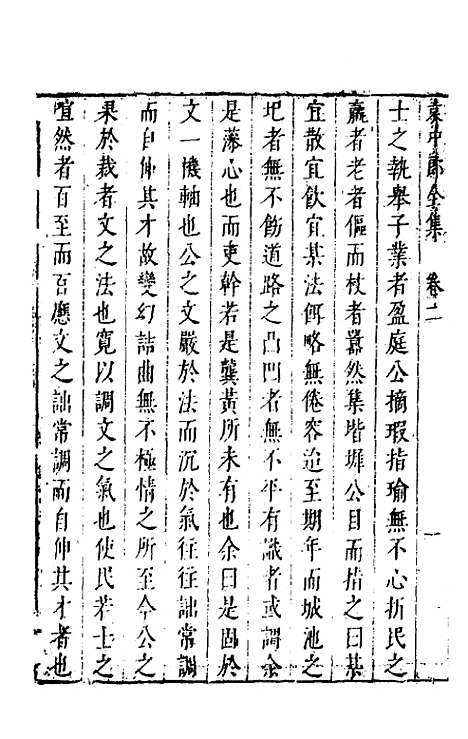 袁中郎全集　卷二　一
士之執舉子業者盈庭公摘瑕指瑜無不心折民之
羸者老者傴而杖者囂然集堦墀公目而揩之曰某
宜散宜飲宜某法餌略無倦容迨至期年而城池之
圯者無不飭道路之凸凹者無不平有識者或謂余
是藻心也而吏幹若是龔黃所未有也余曰是固於
文一機軸也公之文嚴於法而沉於氣往往詘常調
而自伸其才故變幻詰曲無不極情之所至今公之
果於裁者文之法也寬以調文之氣也使民若士之
喧然者百至而百應文之詘常調而自伸其才者也